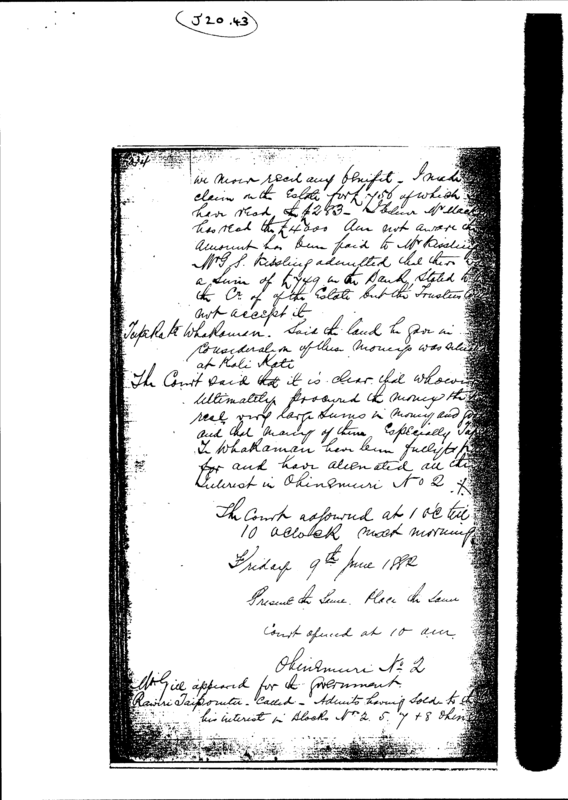 J 20.43
we never recd any benefit - I made
claim on the Estate for £756 of which
have recd £293 -
has recd the £4000 Am not aware
amount has been paid to Mr Kissling
Mr G. S. Kissling admitted that there
a sum of £749 in the Bank, stated
the Cr. of the Estate but the Trustees
not accept it
Whakamau. Said the land he gave in
consideration of these moneys was
at Kati Kati
The Court said that it is clear that
ultimately procured the money the
real very large sums in money and
and that many of them Especially
Te Whakamau have been fully
for and have alienated all
interest in Ohinemuri No 2
The Court adjourned at 1 o'c till
10 o'clock next morning
Friday 9th June 1882
Present the same. Place the same
Court opened at 10 am
Ohinemuri No 2
Mr Gill appeared for the Government.
Rawiri Taiporutu - Called - Admits having sold to
his interest in Blocks Nos 2. 5. 7 + 8